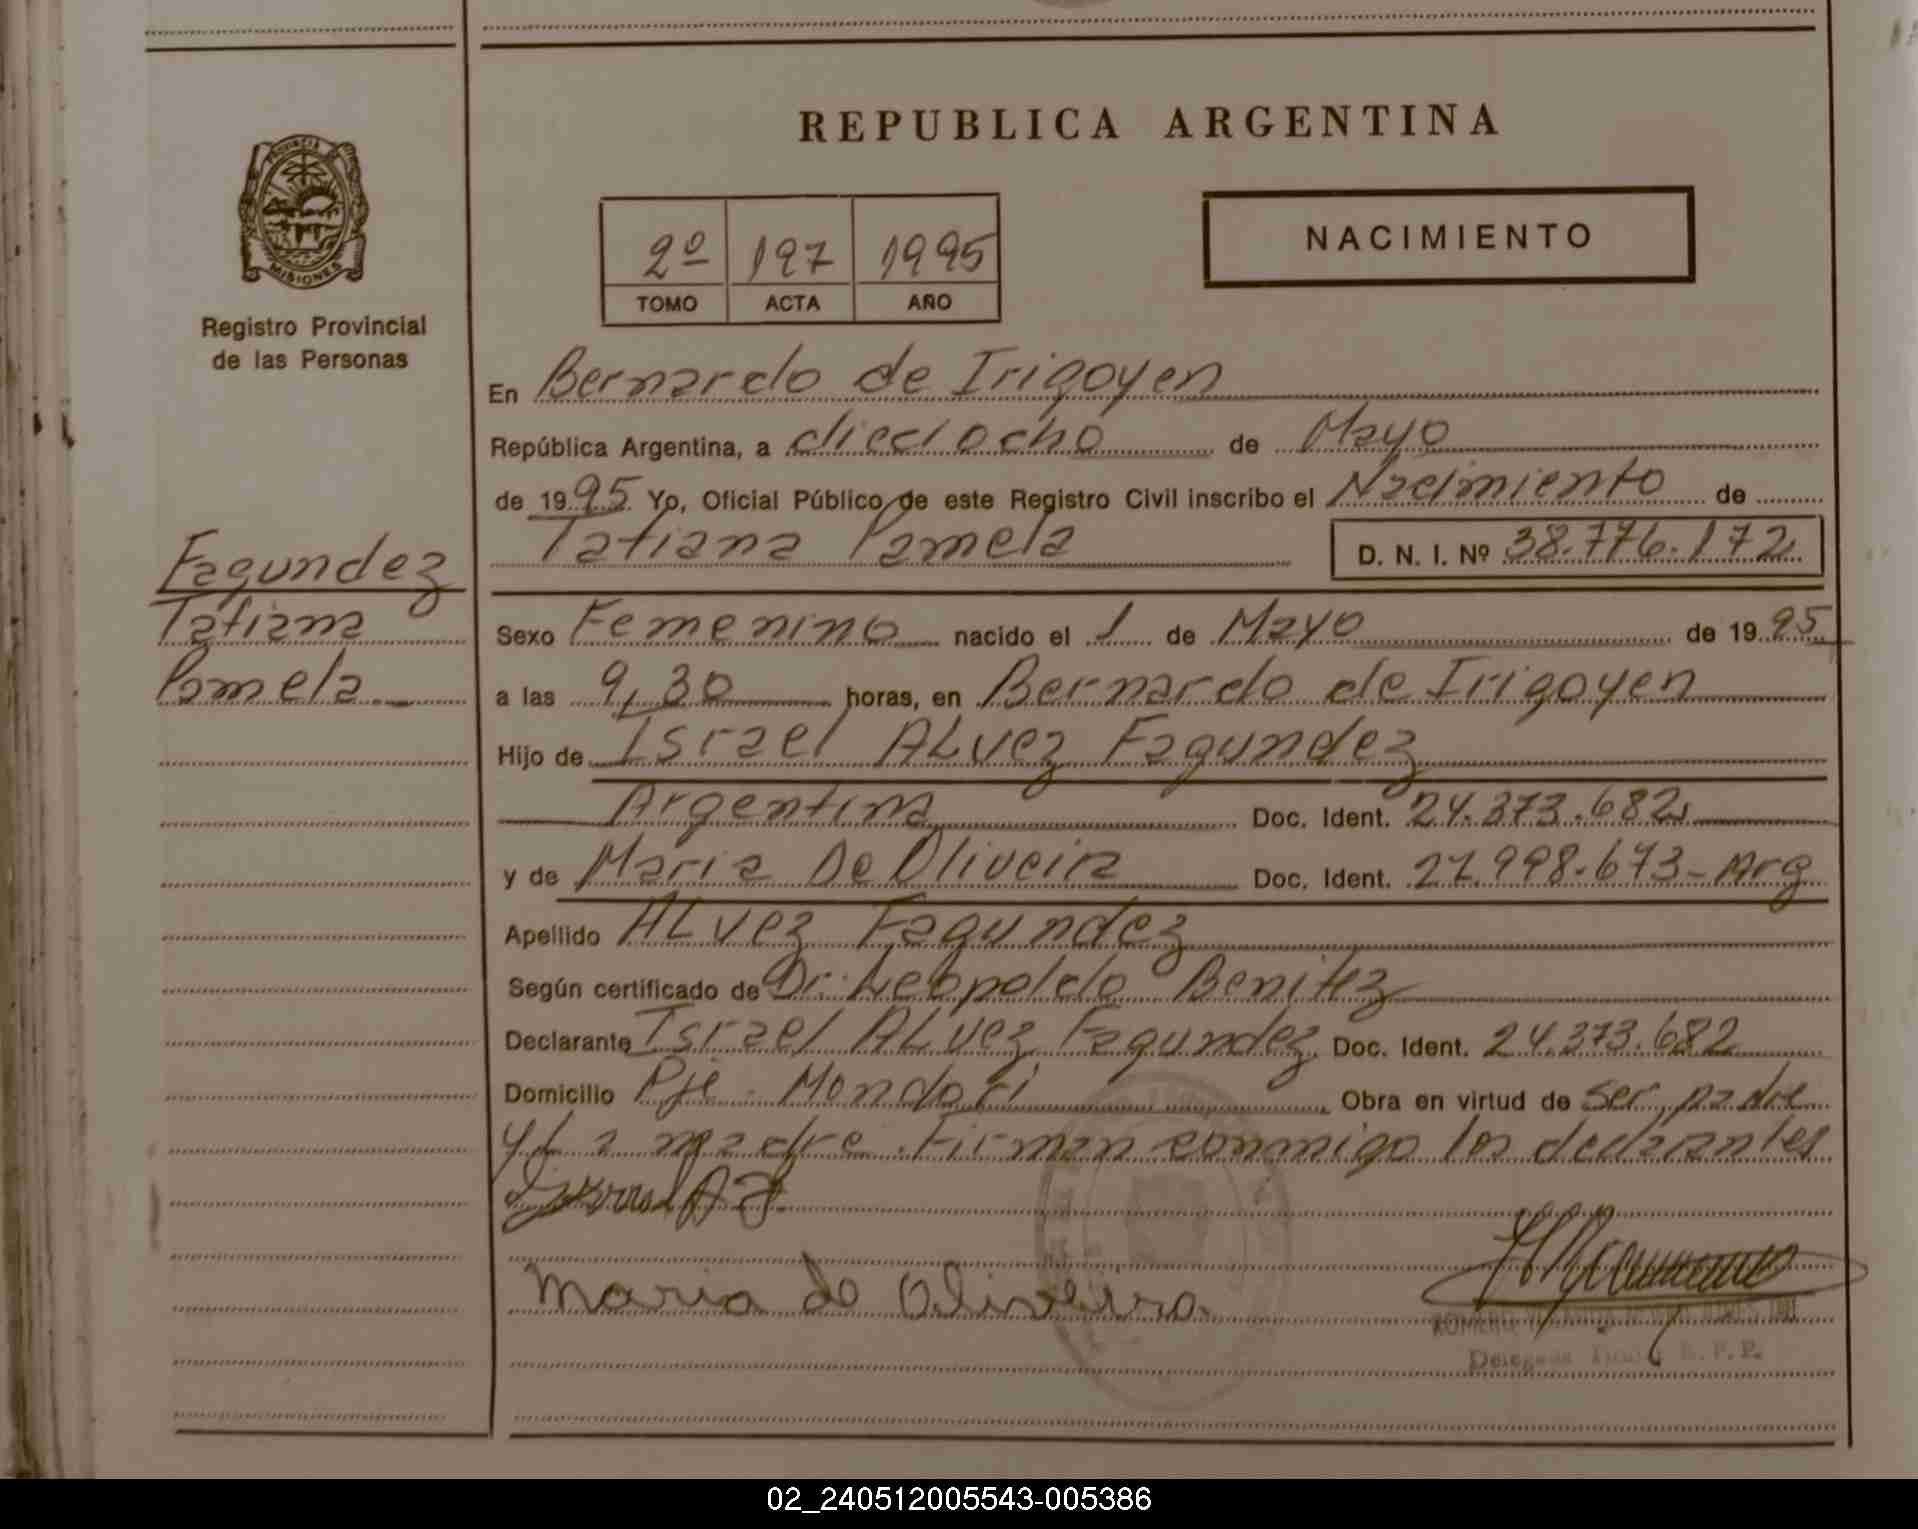 REPUBLICA ARGENTINA
PROVINCIA DE
MISIONES
Registro Provincial
de las Personas
2º 197 1995
TOMO ACTA AÑO
NACIMIENTO
En Bernardo de Irigoyen
República Argentina, a dieciocho de Mayo
de 1995 Yo, Oficial Público de este Registro Civil inscribo el Nacimiento de
Tatiana Pamela D. N. I. Nº 38.776.172
Fagundez
Tatiana
Pamela
Sexo Femenino nacido el 1 de Mayo de 1995
a las 9,30 horas, en Bernardo de Irigoyen
Hijo de Israel ALvez Fagundez
Argentina Doc. Ident. 24.373.682
y de Maria De Oliveira Doc. Ident. 27.998.673-Arg
Apellido ALvez Fagundez
Según certificado de Dr. Leopoldo Benitez
Declarante Israel ALvez Fagundez Doc. Ident. 24.373.682
Domicilio Pje. Mondori Obra en virtud de ser padre
y La madre. Firman conmigo los declarantes
Israel A F.
Maria de Oliveira
ROMERO
Delegada R. P. P.
02_240512005543-005386